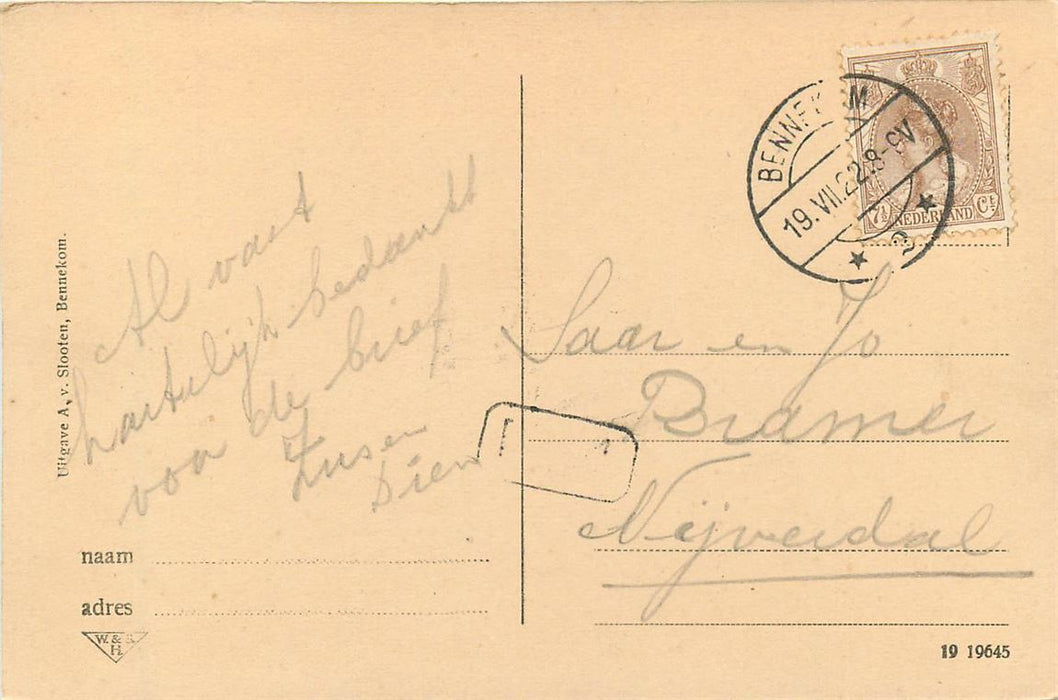 BENNEKOM
19.VII.22.8-9V
2
7½ NEDERLAND Ct
Uitgave A. v. Slooten, Bennekom.
Al vast
hartelijk bedankt
voor de brief
Zus en
Dien
Saar en Jo
Bramer
Nijverdal
naam
adres
W. & S.
H.
19 19645